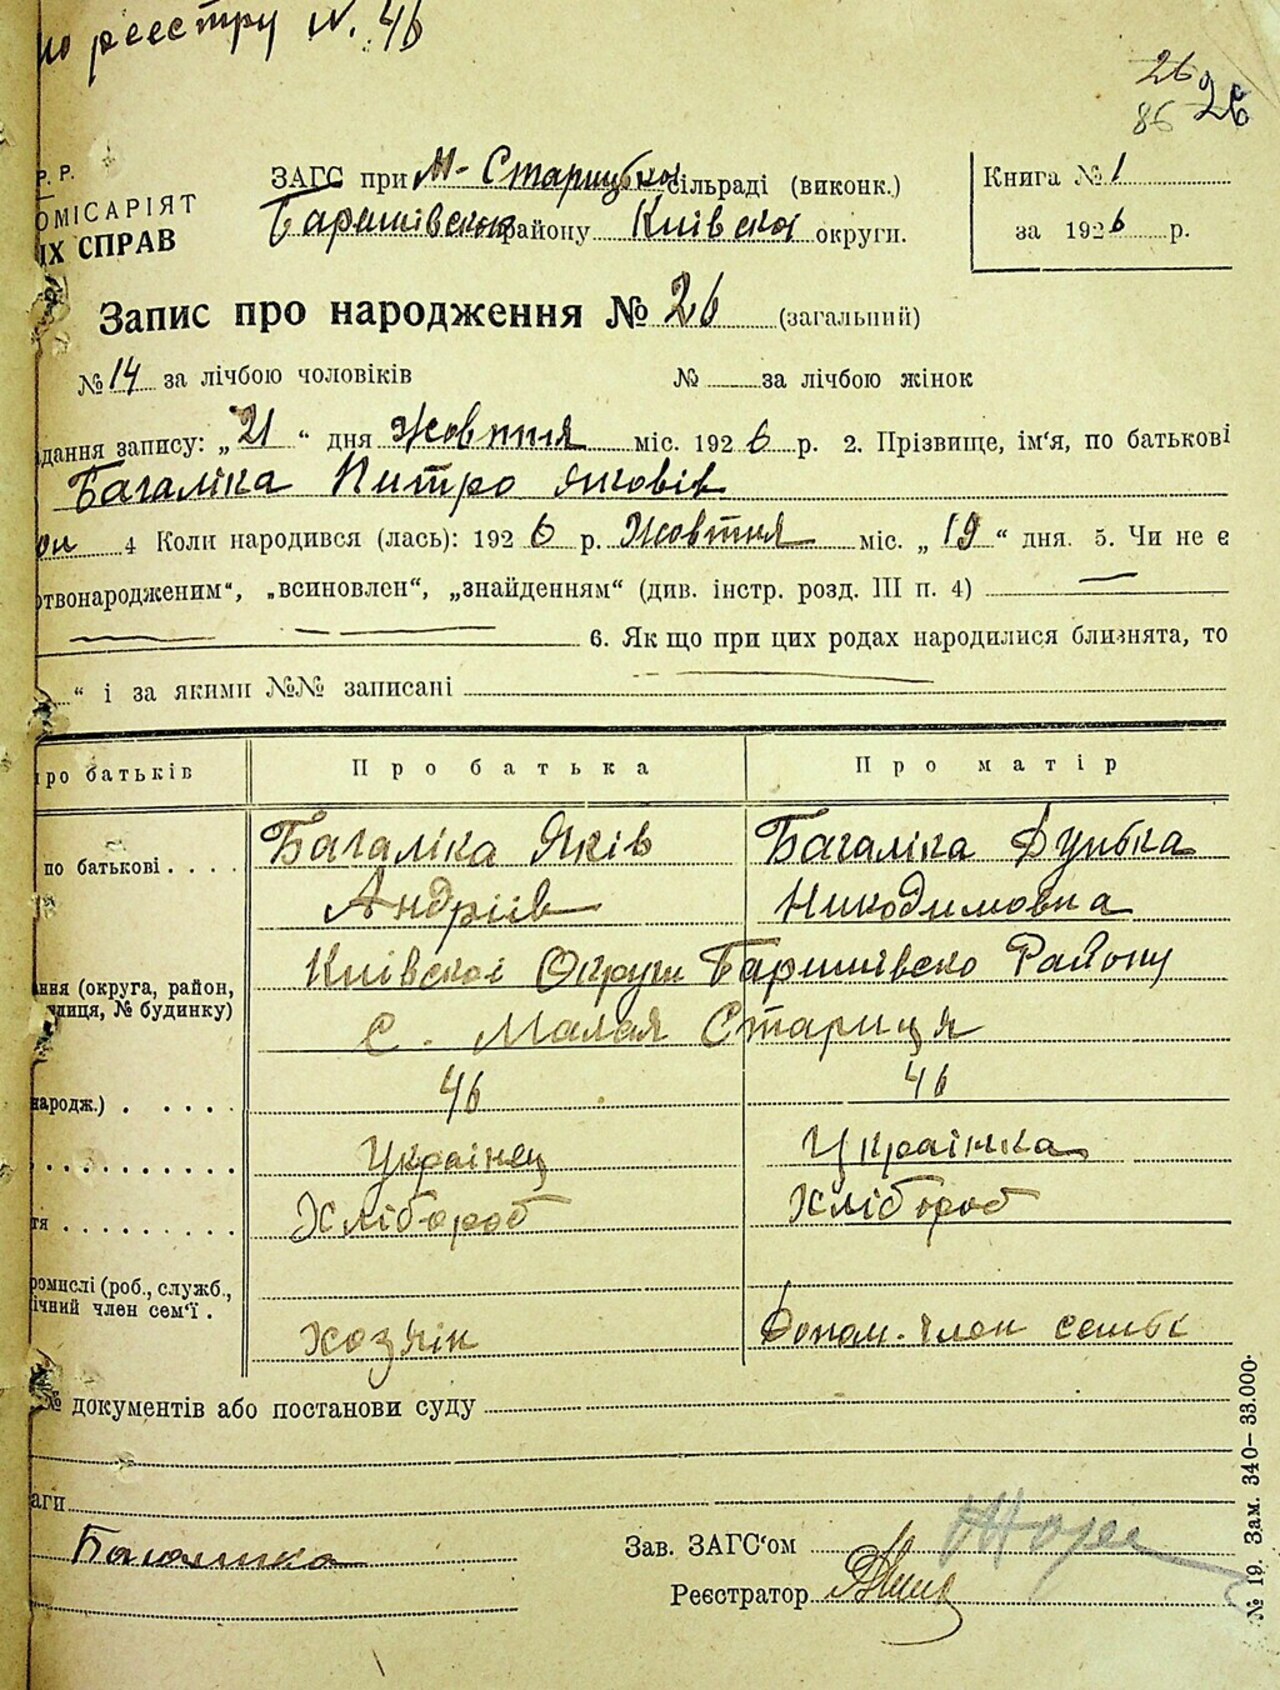 по реестру N. 46
26
86 26
Р. Р.
ОМІСАРІЯТ
ИХ СПРАВ
ЗАГС при М-Старицької сільраді (виконк.)
Баришівської району Київскої округи.
Книга № 1
за 1926 р.
Запис про народження № 26 (загальний)
№ 14 за лічбою чоловіків № за лічбою жінок
дання запису: „21“ дня Жовтня міс. 1926 р. 2. Прізвище, ім'я, по батькові
Багаліка Питро Яковів
4 Коли народився (лась): 1926 р. Жовтня міс. „19“ дня. 5. Чи не є
ртвонародженим“, „всиновлен“, „знайденням“ (див. інстр. розд. III п. 4)
6. Як що при цих родах народилися близнята, то
“ і за якими №№ записані
про батьків Про батька Про матір
по батькові . . . . Багаліка Яків Багаліка Думка
Андріїв Никодимовна
ання (округа, район, Київскої Округи Баришівско Району
улиця, № будинку) С. Малая Стариця
народж.) . . . . . 46 46
Украінец Украінка
тя . . . . . . . . Хлібороб Хлібороб
ромислі (роб., служб.,
ічний член сем'ї . Хозяін Допом. член семьї
№ документів або постанови суду
аги
Багалика Зав. ЗАГС'ом
Реєстратор
№ 19. Зам. 340–33.000.